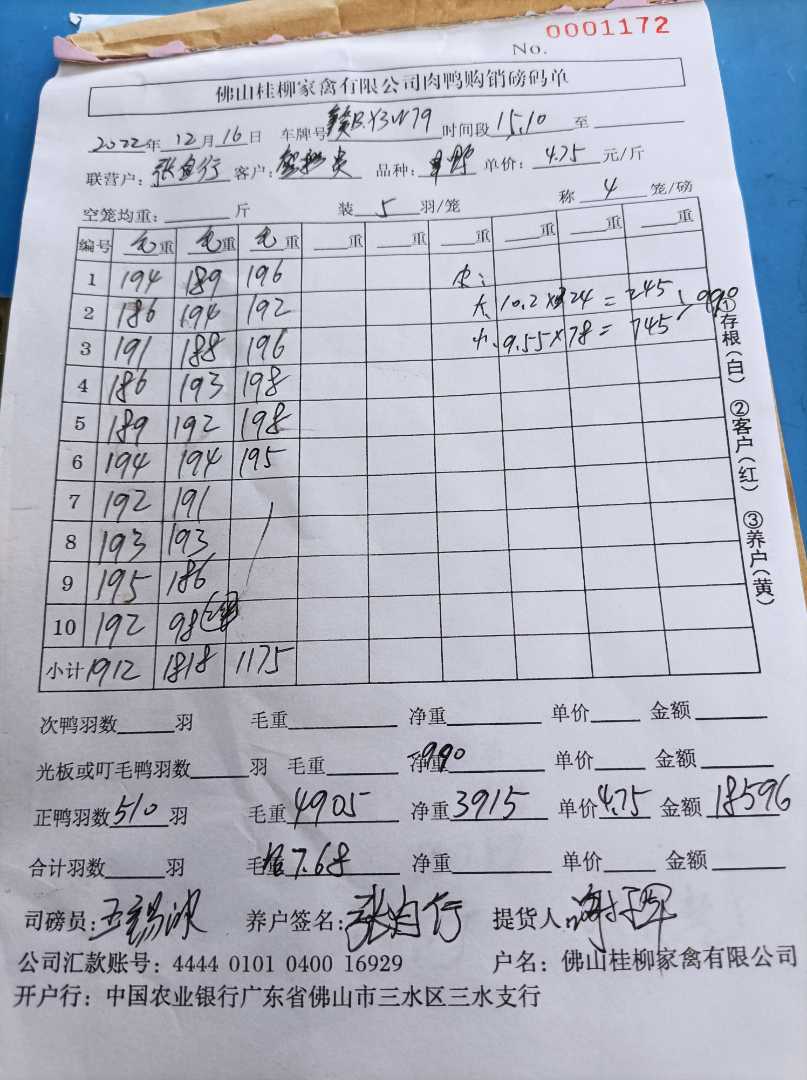 No. 0001172
佛山桂柳家禽有限公司肉鸭购销磅码单
2022年12月16日 车牌号 赣B.X3W79 时间段 15.10 至
联营户: 张自行 客户: 品种: 单价: 4.75 元/斤
空笼均重: 斤 装 5 羽/笼 称 4 笼/磅
编号 毛重 毛重 毛重 重 重 重 重 重 重
1 194 189 196 皮:
2 186 194 192 大 10.2×24=245 990
3 191 188 196 小 9.55×78=745
4 186 193 198
5 189 192 198
6 194 194 195
7 192 191
8 193 193
9 195 186
10 192 98
小计 1912 1818 1175
①存根(白) ②客户(红) ③养户(黄)
次鸭羽数 羽 毛重 净重 单价 金额
光板或叮毛鸭羽数 羽 毛重 净重 990 单价 金额
正鸭羽数 510 羽 毛重 4905 净重 3915 单价 4.75 金额 18596
合计羽数 羽 毛重 7.68 净重 单价 金额
司磅员: 王锡冰 养户签名: 张自行 提货人:
公司汇款账号: 4444 0101 0400 16929 户名: 佛山桂柳家禽有限公司
开户行: 中国农业银行广东省佛山市三水区三水支行